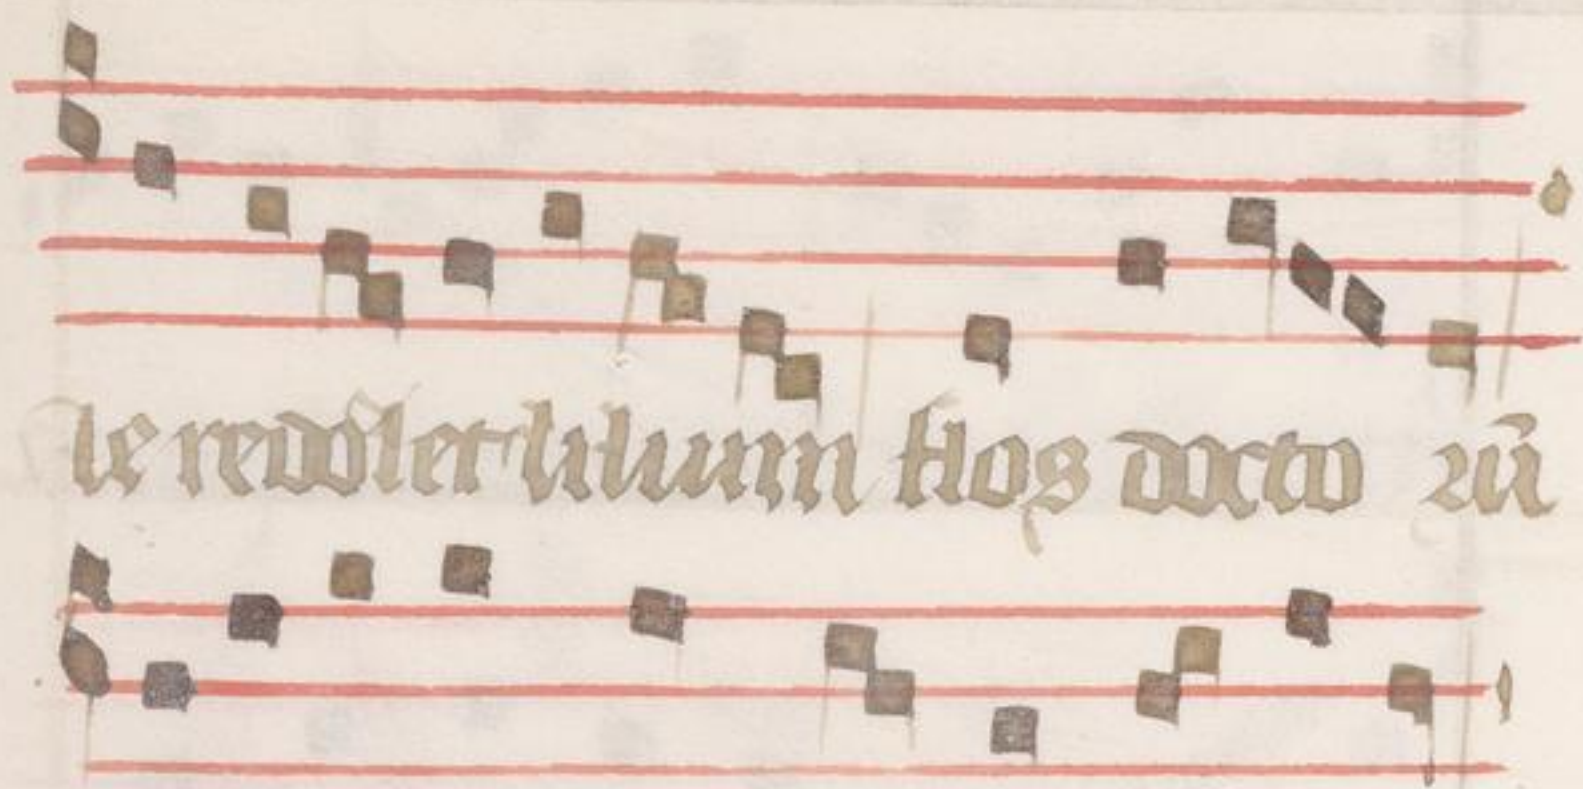 le redolet lilium flos docto rū